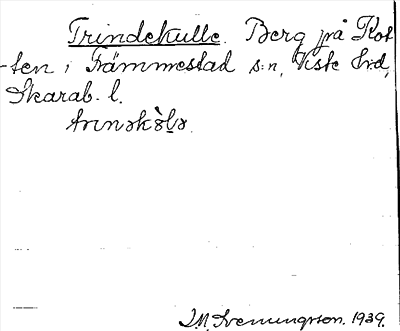 Trindekulle. Berg på Kot-
ten i Främmestad s:n, Viste hrd,
Skarab. l.
J.M. Svenungsson. 1939.